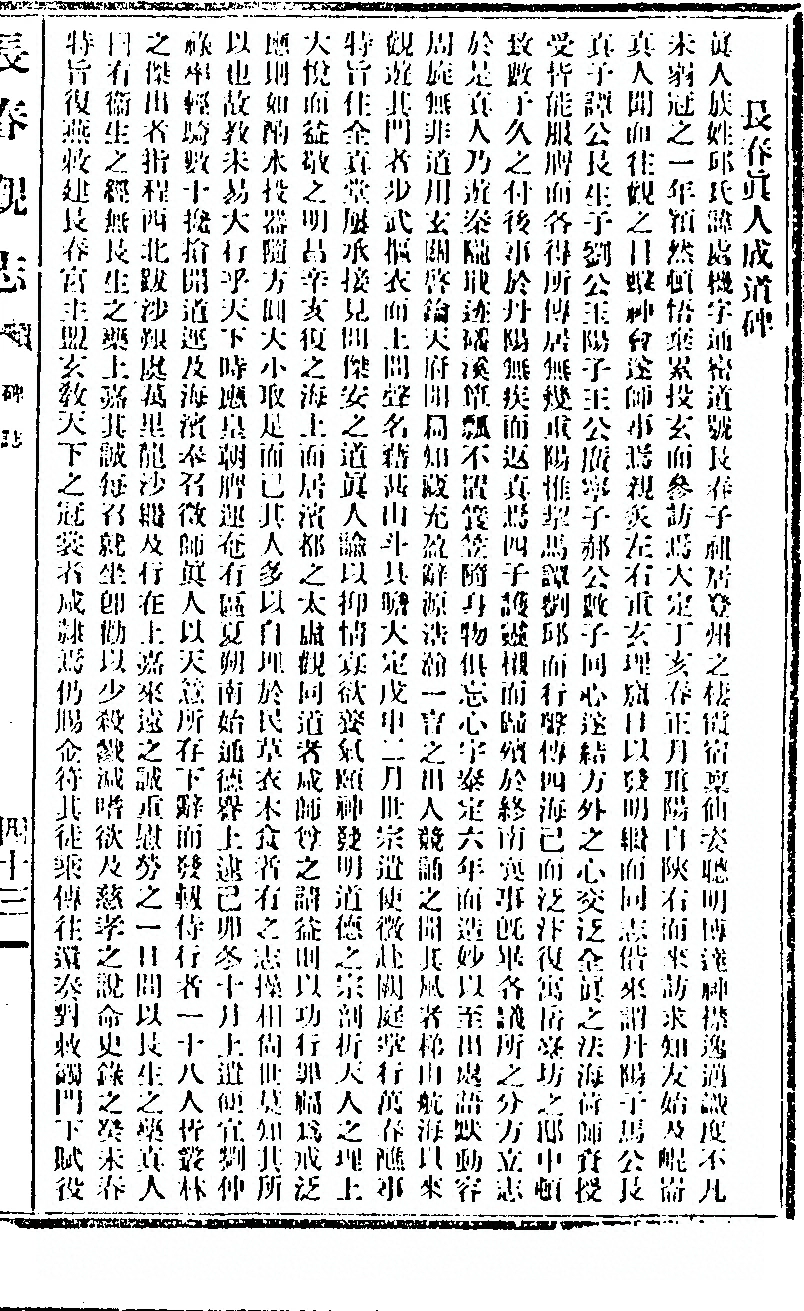 長春眞人成道碑
眞人族姓邱氏諱處機字通密道號長春子祖居登州之棲霞宿稟仙姿聰明博達神襟逸邁識度不凡
未弱冠之一年頴然頓悟棄累投玄而參訪焉大定丁亥春正月重陽自陝右而來訪求知友始及崐崳
眞人聞而往覲之目擊神會遂師事焉親炙左右重玄理窟日以發明繼而同志偕來謂丹陽子馬公長
眞子譚公長生子劉公玉陽子王公廣寧子郝公數子同心遂結方外之心交泛全眞之法海荷師資授
受皆能服膺而各得所傳居無幾重陽惟挈馬譚劉邱而行盤傳四海已而泛汴復寓岳臺坊之邸中頓
致數子久之付後事於丹陽無疾而返真焉四子護靈櫬而歸殯於終南襄事既畢各議所之分方立志
於是真人乃遊秦隴戢迹磻溪簞瓢不置簑笠隨身物俱忘心宇泰定六年而造妙以至出處語默動容
周旋無非道用玄關啓鑰天府開扃知藏充盈辭源浩瀚一言之出人競誦之聞其風者梯山航海以來
觀遊其門者步武摳衣而上聞聲名藉甚山斗具瞻大定戊申二月世宗遣使徵赴闕庭掌行萬春醮事
特旨住全真堂屢承接見問保安之道眞人諭以抑情寡欲養氣頤神發明道德之宗剖析天人之理上
大悅而益敬之明昌辛亥復之海上而居濱都之太虛觀同道者咸師尊之請益則以功行罪福爲戒泛
應則如酌水投器隨方圓大小取足而已其人多以自埋於民草衣木食者有之志操相尙世莫知其所
以也故教未易大行乎天下時應皇朝膺運奄有區夏朔南始通德譽上達己卯冬十月上遣便宜劉仲
祿率輕騎數十攙搶開道逕及海濱奉召徵師眞人以天意所存下辭而發軔侍行者一十八人皆叢林
之傑出者指程西北跋沙艱度萬里龍沙纔及行在上嘉來遠之誠重慰勞之一日問以長生之藥真人
曰有衞生之經無長生之藥上嘉其誠每召就坐卽勸以少殺戮減嗜欲及慈孝之說命史錄之癸未春
特旨復燕敕建長春宮主盟玄教天下之冠裳者咸隸焉仍賜金符其徒乘傳往還奏對敕蠲門下賦役
長春觀志
碑誌
四十三